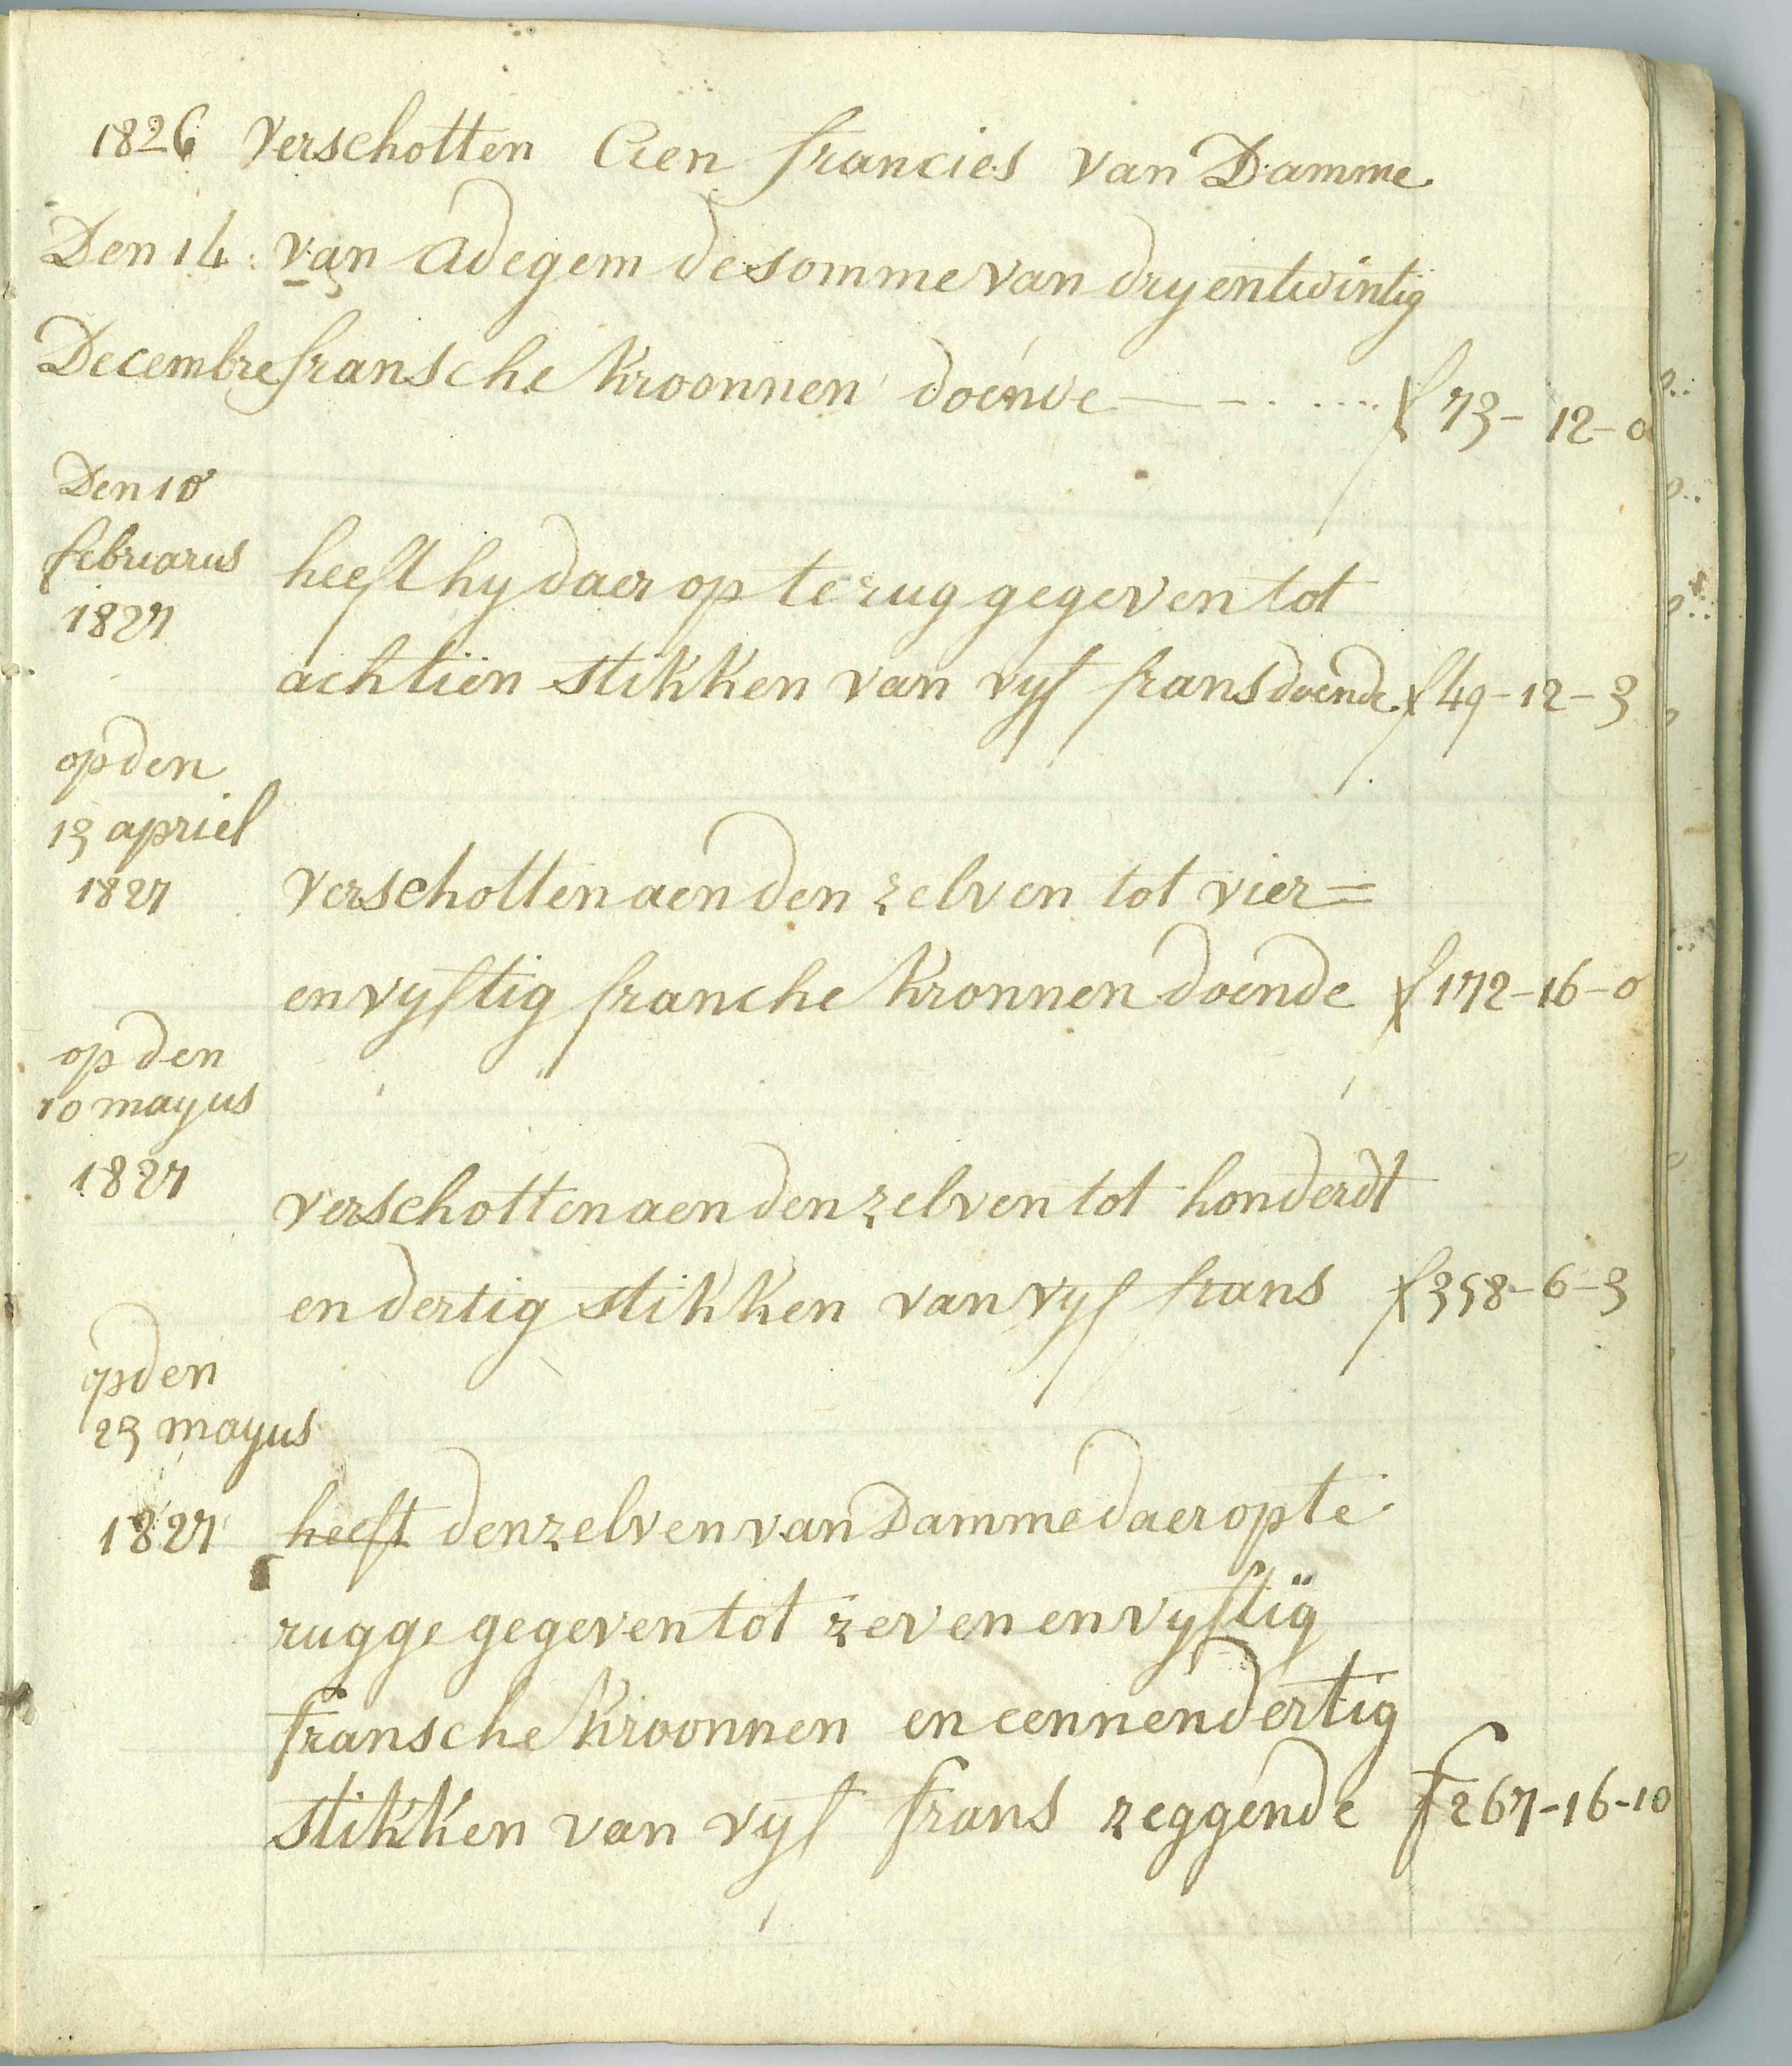 1826 Verschotten Aen francies van Damme
Den 14 van Adegem de somme van dryentwintig
Decembre fransche kroonnen doende f 73 - 12 - 0
Den 10
februarus
1827
heeft hy daer op terug gegeven tot
achtien stikken van vyf frans doende f 49 - 12 - 3
op den
13 apriel
1827
verschotten aen den zelven tot vier=
en vyftig franche kronnen doende f 172 - 16 - 0
op den
10 mayus
1827
verschotten aen den zelven tot honderdt
en dertig stikken van vyf frans f 358 - 6 - 3
op den
23 mayus
1827
heeft den zelven van Damme daer op te
rugge gegeven tot zeven en vyftig
fransche kroonnen en eennendertig
stikken van vyf frans zeggende f 267 - 16 - 10